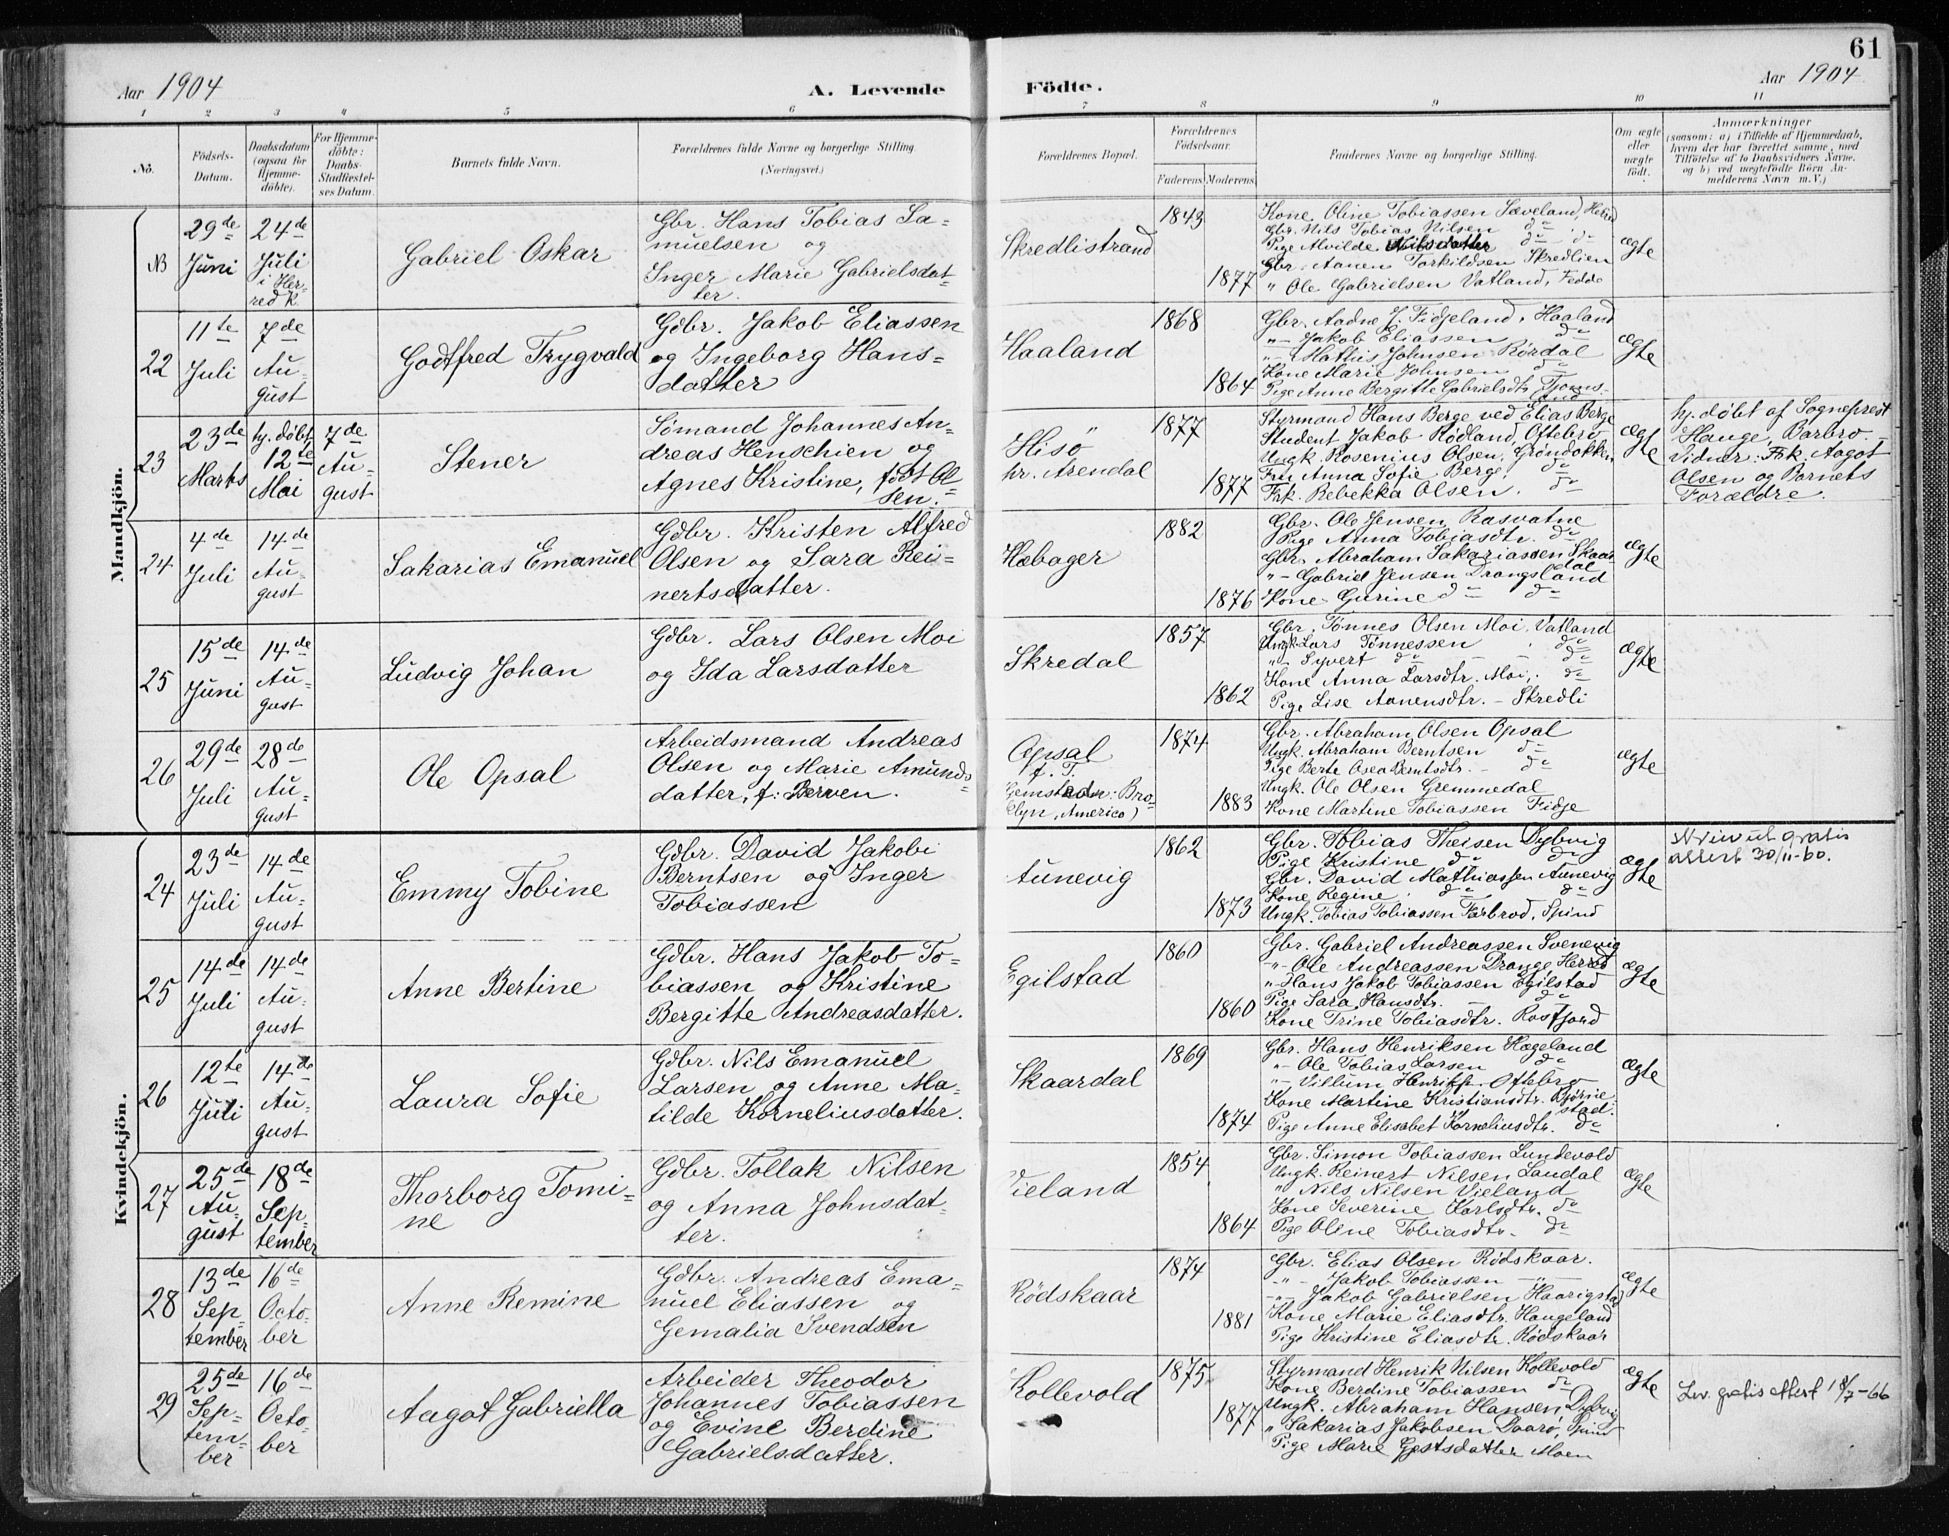 61
Aar 1904
A. Levende
Födte.
Aar 1904
1 2 3 4 5 6 7 8 9 10 11
No.
Födsels-
Datum.
Daabsdatum
(ogsaa for
Hjemme-
döbte).
For Hjemme-
döbte:
Daabs-
Stadfæstel-
ses Datum.
Barnets fulde Navn.
Forældrenes fulde Navne og borgerlige Stilling.
(Næringsvei.)
Forældrenes Bopæl.
Forældrenes
Födselsaar.
Faderens Moderens
Faddernes Navne og borgerlige Stilling.
Om ægte
eller
uægte
født.
Anmærkninger
(saasom: a) i Tilfælde af Hjemmedaab,
hvem der har forrettet samme, med
Tilföielse af to Daabsvidners Navne.
og b) ved uægtefödte Börn An-
melderens Navn m.V.)
Mandkjön.
NB
29de
Juni
24de
Juli
i Her-
red K.
Gabriel Oskar
Gbr. Hans Tobias Sa-
muelsen og
Inger Marie Gabrielsdat-
ter.
Skredlistrand
1843
1877
Kone Oline Tobiassen Sæveland, Herred
Gbr. Nils Tobias Nilsen do
Pige Alvilde Nilsdatter do do
Gbr. Aanen Torkildsen Skredlien
" Ole Gabrielsen Vatland, Fedde
ægte
22
11te
Juli
7de
Au-
gust
Godtfred Trygvald
Gdbr. Jakob Eliassen
og Ingeborg Hans-
datter
Haaland
1868
1864
Gbr. Aadne J. Fidjeland, Haaland
"- Jakob Eliassen do
"- Mathis Johnsen Rørdal
Kone Marie Johnsen do
Pige Anne Bergitte Gabrielsdtr, Tjoms-
land
ægte
23
23de
Marts
hj. døbt
12te
Mai
7de
Au-
gust
Stener
Sömand Johannes An-
dreas Henschien og
Agnes Kristine, født Ol-
sen.
Hisö
hr. Arendal
1877
1877
Styrmand Hans Berge ved Elias Berge
Student Jakob Rødland, Oftebro
Ungk. Rosenius Olsen, Grøndokken
Fru Anna Sofie Berge, do
Frk. Rebekka Olsen. do
ægte
hj. døbt af Sogneprest
Hauge, Barbro.-
Vidner: Frk. Aagot
Olsen og Barnets
Forældre.
24
4de
Juli
14de
Au-
gust
Sakarias Emanuel
Gdbr. Kristen Alfred
Olsen og Sara Rei-
nertsdatter.
Hæbager
1882
1876
Gbr. Ole Jensen Rasvatne
Pige Anna Tobiasdtr. do
Gbr. Abraham Sakariassen Skaar-
dal
"- Gabriel Jensen Drangsland
Kone Gurine do do
ægte
25
15de
Juni
14de
Au-
gust
Ludvig Johan
Gdbr. Lars Olsen Moi
og Ida Larsdatter
Skredal
1857
1862
Gbr. Tønnes Olsen Moi, Vatland
Ungk. Lars Tønnessen do
"- Syvert do - - do
Kone Anna Larsdtr. Moi, do
Pige Lise Aanensdtr. - Skredli
ægte
26
29de
Juli
28de
Au-
gust
Ole Opsal
Arbeidsmand Andreas
Olsen og Marie Amunds-
datter, f: Berven.
Opsal
f. T.
Brο-
klyn, America)
1874
1883
Gbr. Abraham Olsen Opsal
Ungk. Abraham Berntsen do
Pige Berte Osea Berntsdtr. - do
Ungk. Ole Olsen Gremmedal
Kone Martine Tobiassen Fidje
ægte
Kvindekjön.
24
23de
Juli
14de
Au-
gust
Emmy Tobine
Gdbr. David Jakobi
Berntsen og Inger
Tobiassen
Aunevig
1862
1873
Gbr. Tobias Theisen Dybvig
Pige Kristine do do
Gbr. David Mathiassen Aunevig
Kone Regine do do
Ungk. Tobias Tobiassen Farbrod, Spind
ægte
gratis
attest 30/11-60.
25
14de
Juli
14de
Au-
gust
Anne Bertine
Gdbr. Hans Jakob To-
biassen og Kristine
Bergitte Andreasdatter.
Egilstad
1860
1860
Gbr. Gabriel Andreassen Svenevig
"- Ole Andreassen Drange, Herred
"- Hans Jakob Tobiassen Egilstad
Pige Sara Hansdtr. - do
Kone Trine Tobiasdtr. Rosfjord
ægte
26
12te
Juli
14de
Au-
gust
Laura Sofie
Gdbr. Nils Emanuel
Larsen og Anne Ma-
tilde Korneliusdatter.
Skaardal
1869
1874
Gbr. Hans Henriksen Hægeland
"- Ole Tobias Larsen do
"- Villum Henriks. Oftebro
Kone Martine Kristiansdtr. Bjørne-
stad.
Pige Anne Elisabet Korneliusdtr. do
ægte
27
25de
Au-
gust
18de
Sep-
tember
Thorborg Tomi-
ne
Gdbr. Tollak Nilsen
og Anna Johnsdat-
ter.
Vieland
1854
1864
Gbr. Simon Tobiassen Lundevold
Ungk. Reinert Nilsen Laudal
" Nils Nilsen Vieland
Kone Severine Karlsdtr. do
Pige Oline Tobiasdtr. do
ægte
28
13de
Sep-
tember
16de
Octo-
ber
Anne Remine
Gdbr. Andreas Ema-
nuel Eliassen og
Gemalia Svendsen
Rödskaar
1874
1881
Gbr. Elias Olsen Rødskaar.
-"- Jakob Tobiassen -"-
-"- Jakob Gabrielsen Haarigstad
Kone Marie Eliasdtr. Haugeland
Pige Kristine Eliasdtr. Rødskaar
ægte
29
25de
Sep-
tem-
ber
16de
Octo-
ber
Aagot Gabriella
Arbeider Theodor
Johannes Tobiassen
og Evine Berdine
Gabrielsdatter.
Kollevold
1875
1877
Styrmand Henrik Nilsen Kollevold
Kone Berdine Tobiassen do
Ungk. Abraham Hansen Dybvig
" Sakarias Jakobsen Daarø, Spind
Pige Marie Gjertsdatter Moen
ægte
Lev. gratis attest 18/7-66